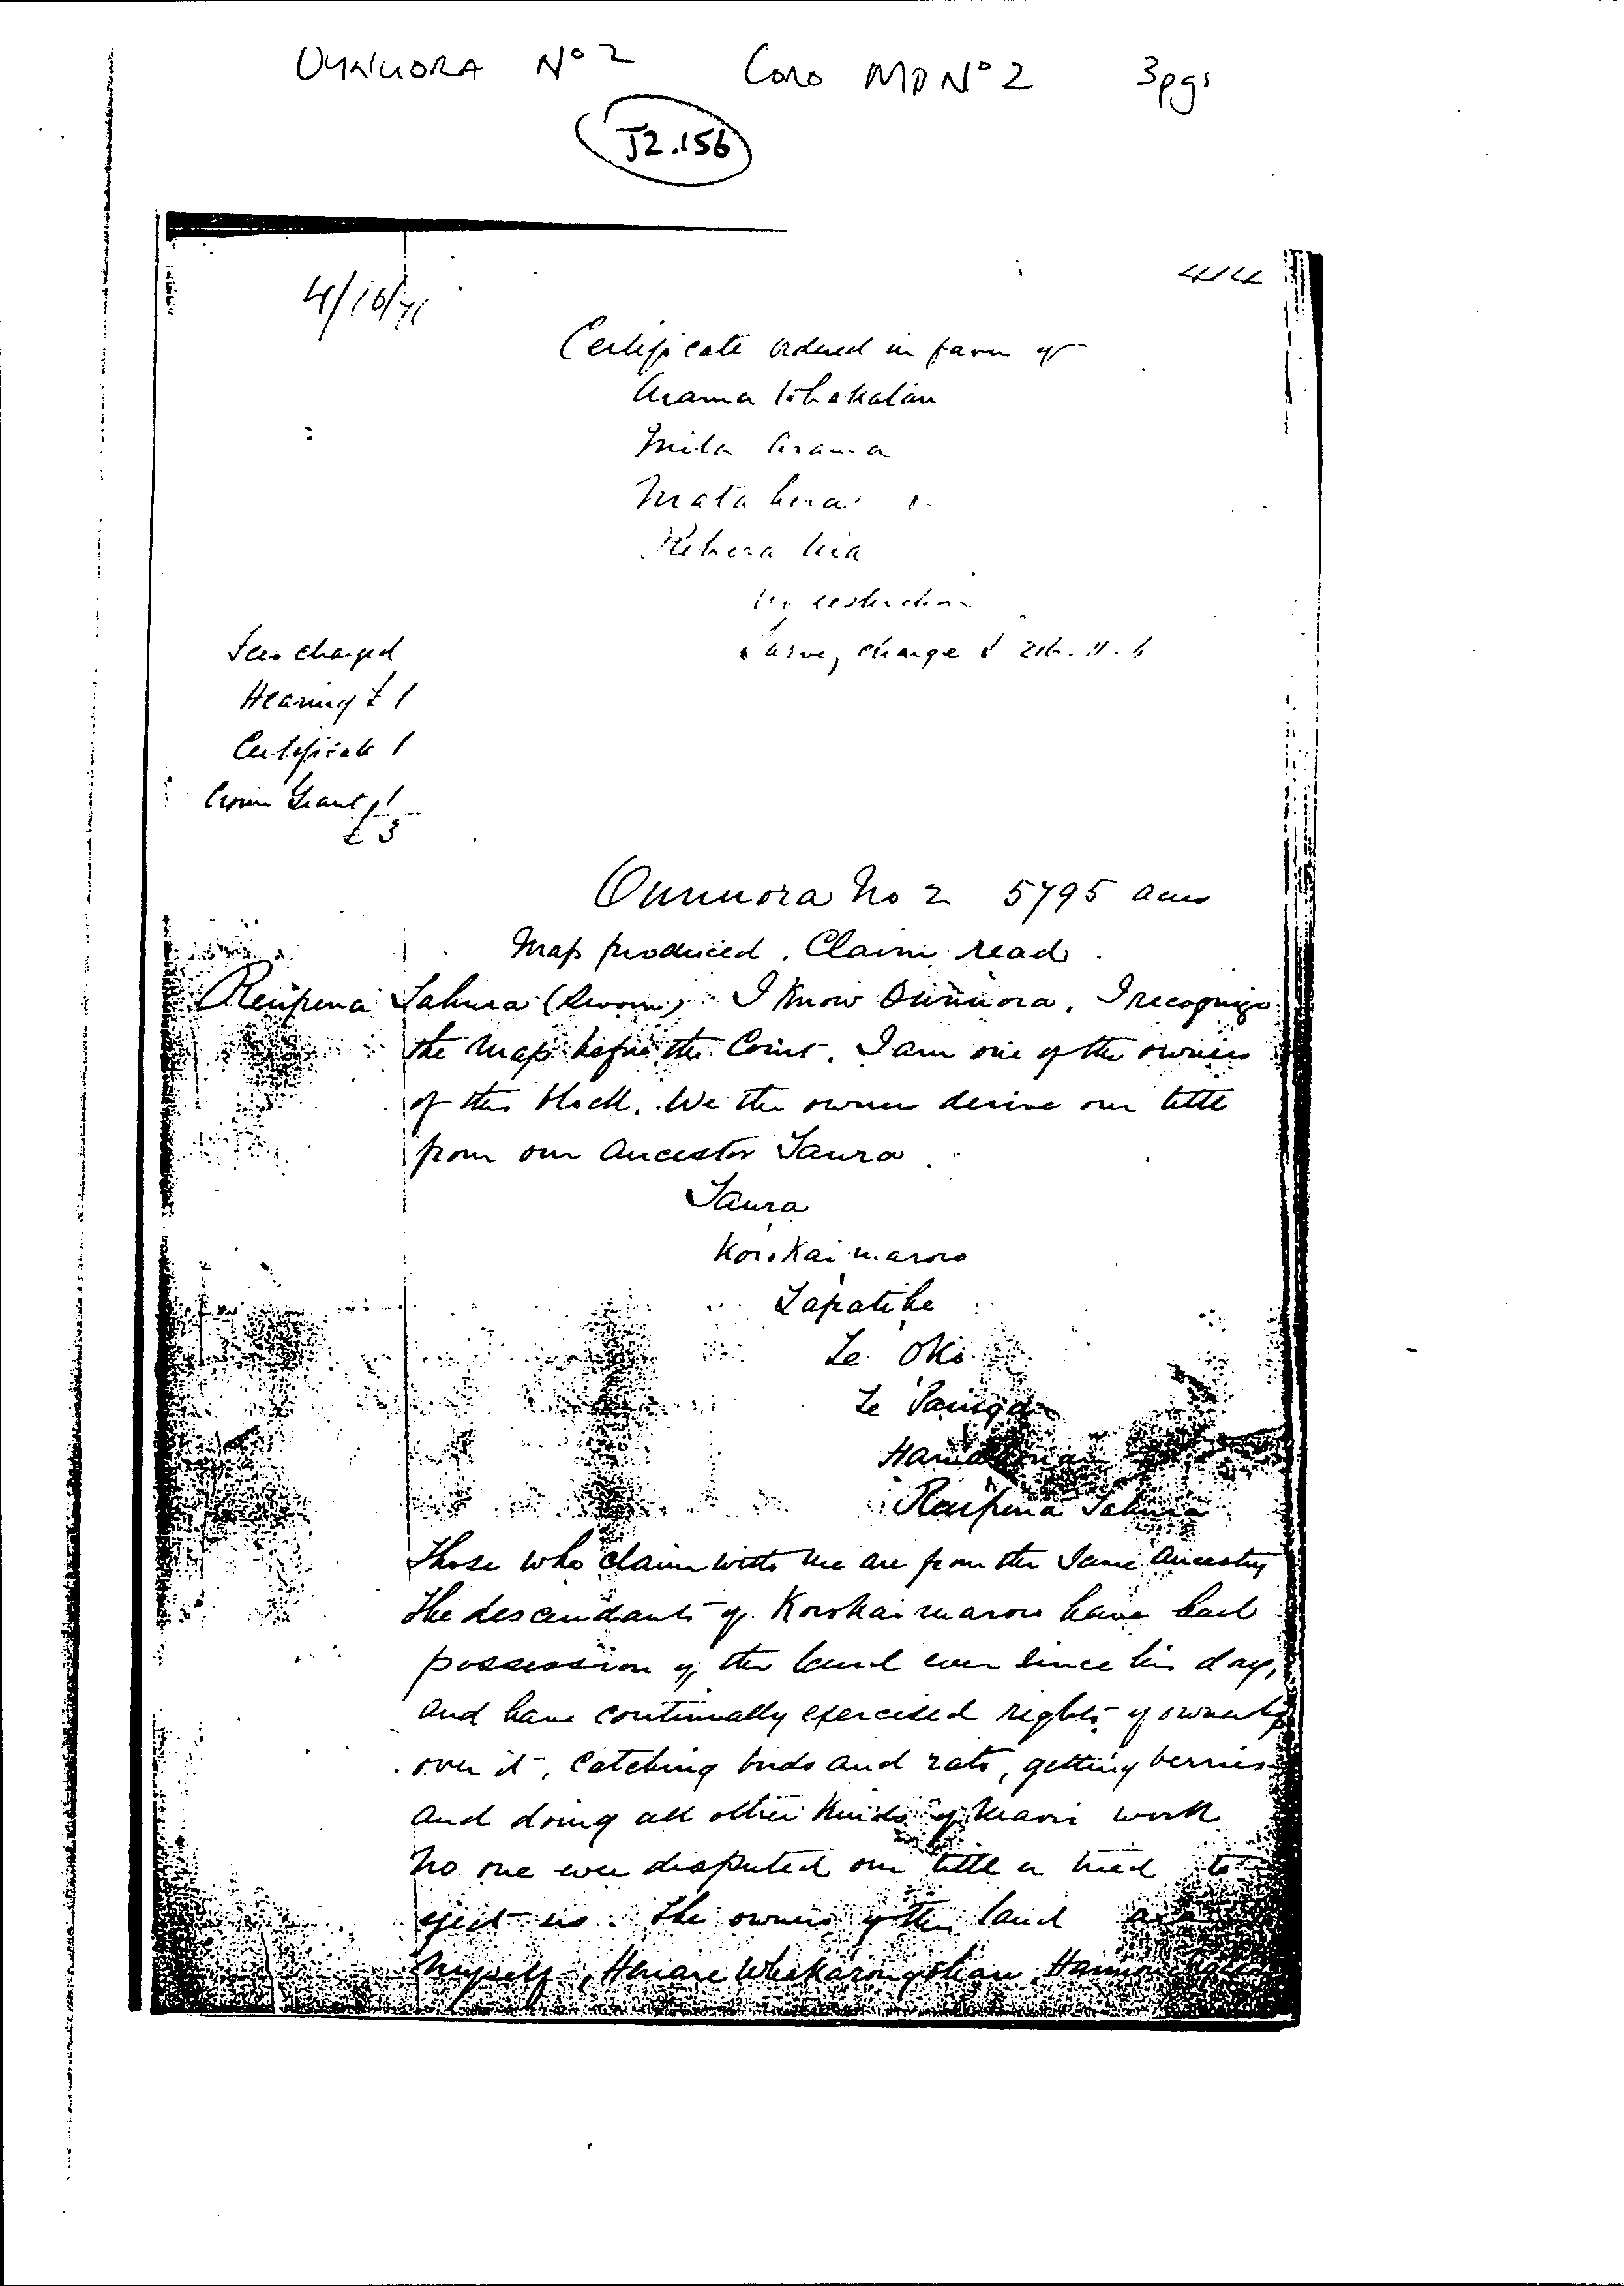 OUNUORA Nº 2 Coro MB Nº 2 3pgs
J2.156
4/10/71
Certificate ordered in favor of
Arama Whakatau
Mita Arama
Mata hera
Rihera Kia
No restriction
Survey charge £
Fees charged
Hearing £ 1
Certificate 1
Crown Grant 1
£ 3
Ounuora No 2 5795 acres
Map produced. Claim read.
Reupena Tahura (Sworn) I know Ounuora. I recognize
the map before the Court. I am one of the owners
of this block. We the owners derive our title
from our Ancestor Taura.
Taura
Korokaimaroro
Tapatihe
Te Oki
Te Painga
Reupena Tahura
Those who claim with me are from the same Ancestry
The descendants of Korokaimaroro have had
possession of the land ever since his day,
and have continually exercised rights of ownership
over it, catching birds and rats, getting berries
and doing all other kinds of Maori work
No one ever disputed our title or tried to
eject us. The owners of the land are
Myself, Henare Whakarongohau,